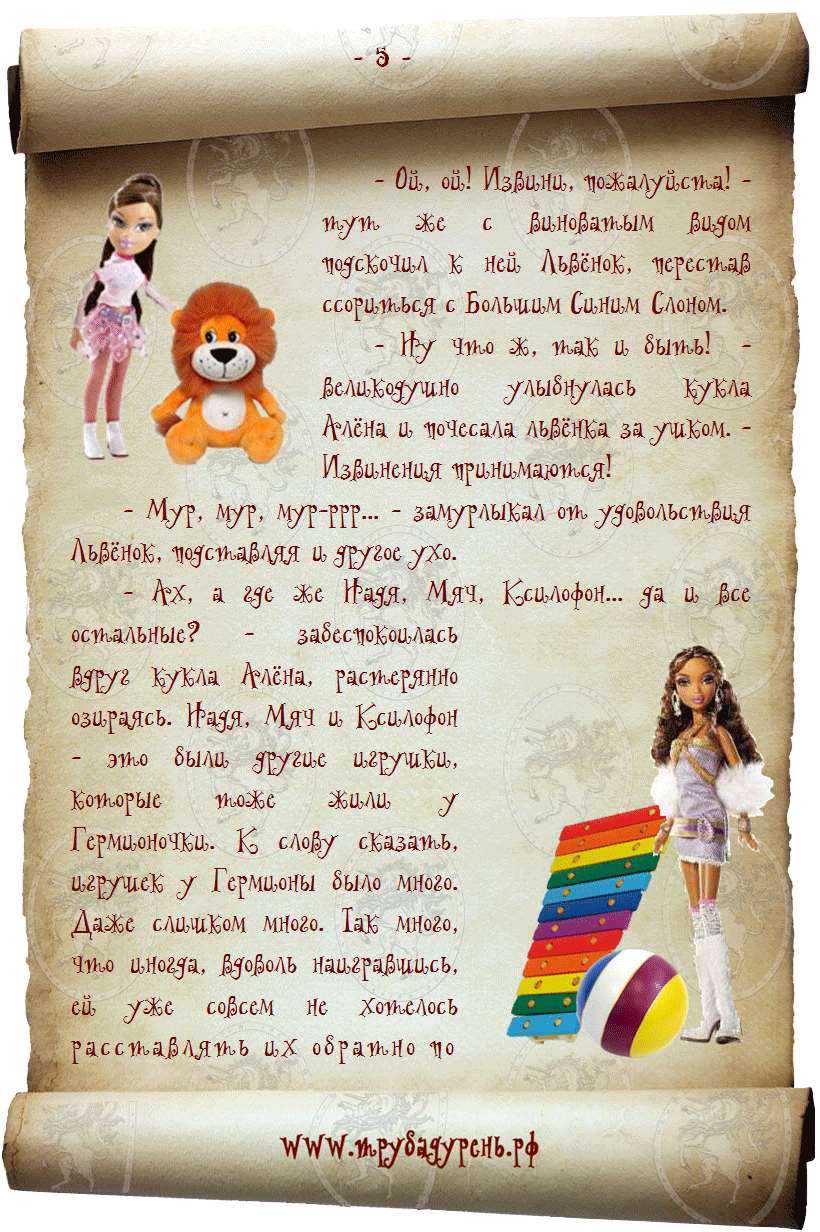 - 5 -
- Ой, ой! Извини, пожалуйста! -
тут же с виноватым видом
подскочил к ней Львёнок, перестав
ссориться с Большим Синим Слоном.
- Ну что ж, так и быть! -
великодушно улыбнулась кукла
Алёна и почесала львёнка за ушком. -
Извинения принимаются!
- Мур, мур, мур-ррр... - замурлыкал от удовольствия
Львёнок, подставляя и другое ухо.
- Ах, а где же Надя, Мяч, Ксилофон... да и все
остальные? - забеспокоилась
вдруг кукла Алёна, растерянно
озираясь. Надя, Мяч и Ксилофон
- это были другие игрушки,
которые тоже жили у
Гермионочки. К слову сказать,
игрушек у Гермионы было много.
Даже слишком много. Так много,
что иногда, вдоволь наигравшись,
ей уже совсем не хотелось
расставлять их обратно по
www.трубадурень.рф